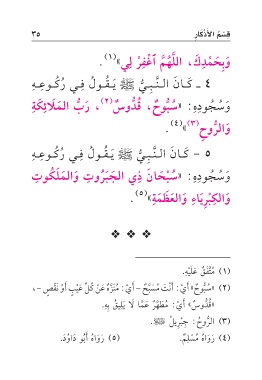 قِسْمُ الْأَذْكَارِ ٣٥
وَبِحَمْدِكَ، اللَّهُمَّ اغْفِرْ لِي»(١).
٤ - كَانَ النَّبِيُّ ﷺ يَقُولُ فِي رُكُوعِهِ
وَسُجُودِهِ: «سُبُّوحٌ، قُدُّوسٌ(٢)، رَبُّ المَلَائِكَةِ
وَالرُّوحِ(٣)»(٤).
٥ - كَانَ النَّبِيُّ ﷺ يَقُولُ فِي رُكُوعِهِ
وَسُجُودِهِ: «سُبْحَانَ ذِي الجَبَرُوتِ وَالمَلَكُوتِ
وَالكِبْرِيَاءِ وَالعَظَمَةِ»(٥).
(١) مُتَّفَقٌ عَلَيْهِ.
(٢) «سُبُّوحٌ» أَيْ: أَنْتَ مُسَبَّحٌ - أَيْ: مُنَزَّهٌ عَنْ كُلِّ عَيْبٍ أَوْ نَقْصٍ -،
«قُدُّوسٌ» أَيْ: مُطَهَّرٌ عَمَّا لَا يَلِيقُ بِهِ.
(٣) الرُّوحُ: جِبْرِيلُ ﷺ.
(٤) رَوَاهُ مُسْلِمٌ. (٥) رَوَاهُ أَبُو دَاوُدَ.